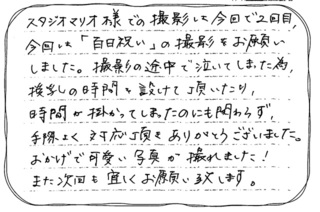 スタジオマリオ様での撮影は今回で2回目、
今回は「百日祝い」の撮影をお願い
しました。撮影の途中で泣いてしまった為、
授乳の時間を設けて頂いたり、
時間が掛かってしまったのにも関わらず、
手際よく対応頂きありがとうございました。
おかげで可愛い写真が撮れました!
また次回も宜しくお願い致します。